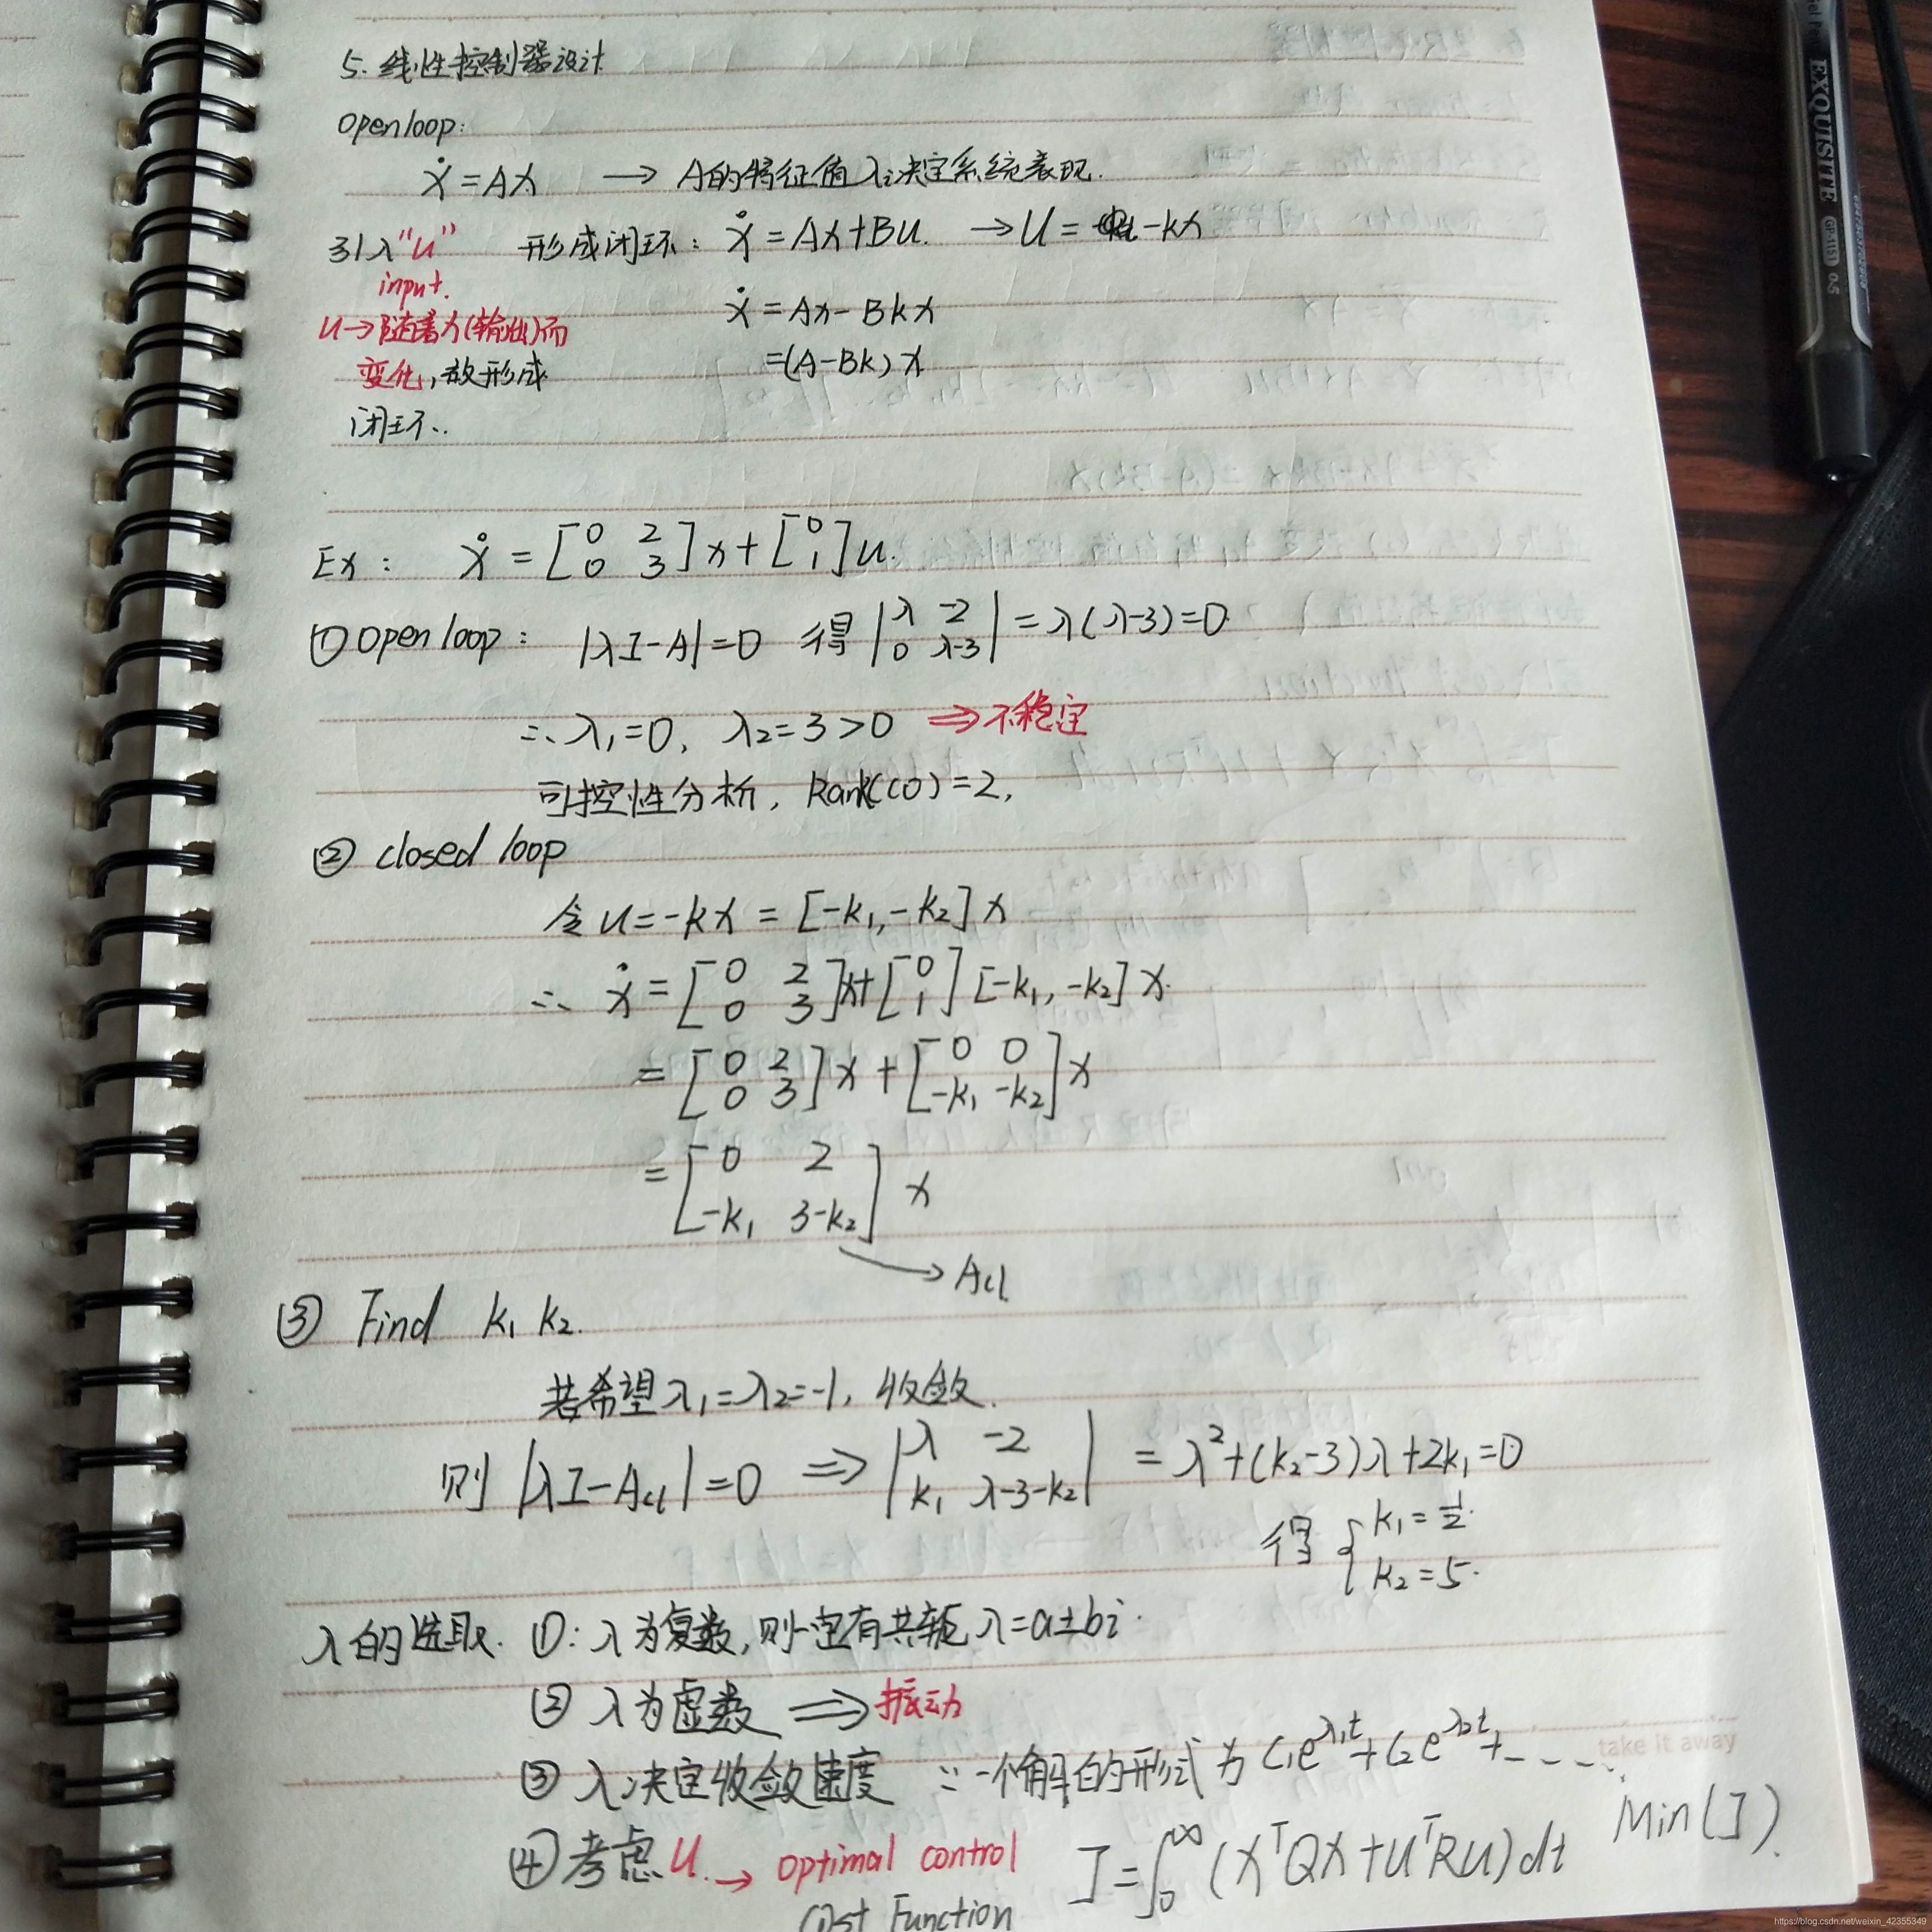 5. 线性控制器设计
Open loop:
ẋ = Ax → A的特征值λ决定系统表现.
引入"u" 形成闭环: ẋ = Ax+Bu. → u = -kx
input.
u→随着x(输出)而
变化,故形成
闭环..
ẋ = Ax - Bkx
=(A-Bk)x
Ex: ẋ = [0 2; 0 3]x + [0; 1]u.
① Open loop: |λI-A|=0 得 |λ -2; 0 λ-3| = λ(λ-3)=0
∴ λ₁=0, λ₂=3>0 ⇒不稳定
可控性分析, Rank(CO)=2,
② closed loop
令 u=-kx = [-k₁,-k₂]x
∴ ẋ = [0 2; 0 3]x+[0; 1][-k₁, -k₂]x.
= [0 2; 0 3]x + [0 0; -k₁ -k₂]x
= [0 2; -k₁ 3-k₂] x
→ Acl
③ Find k₁ k₂.
若希望λ₁=λ₂=-1, 收敛.
则 |λI-Acl|=0 ⇒ |λ -2; k₁ λ-3-k₂| = λ²+(k₂-3)λ+2k₁=0
得 { k₁=1/2.
k₂=5.
λ的选取. ①: λ为复数,则一定有共轭 λ=a±bi.
② λ为虚数 ⇒ 振动
③ λ决定收敛速度 ∵一个解的形式为 C₁e^λ₁t + C₂e^λ₂t + ----
take it away
④ 考虑u. → optimal control J=∫₀^∞ (xᵀQx+uᵀRu)dt Min(J).
Cost Function
EXQUISITE
GP-1151 0.5
https://blog.csdn.net/weixin_42355349